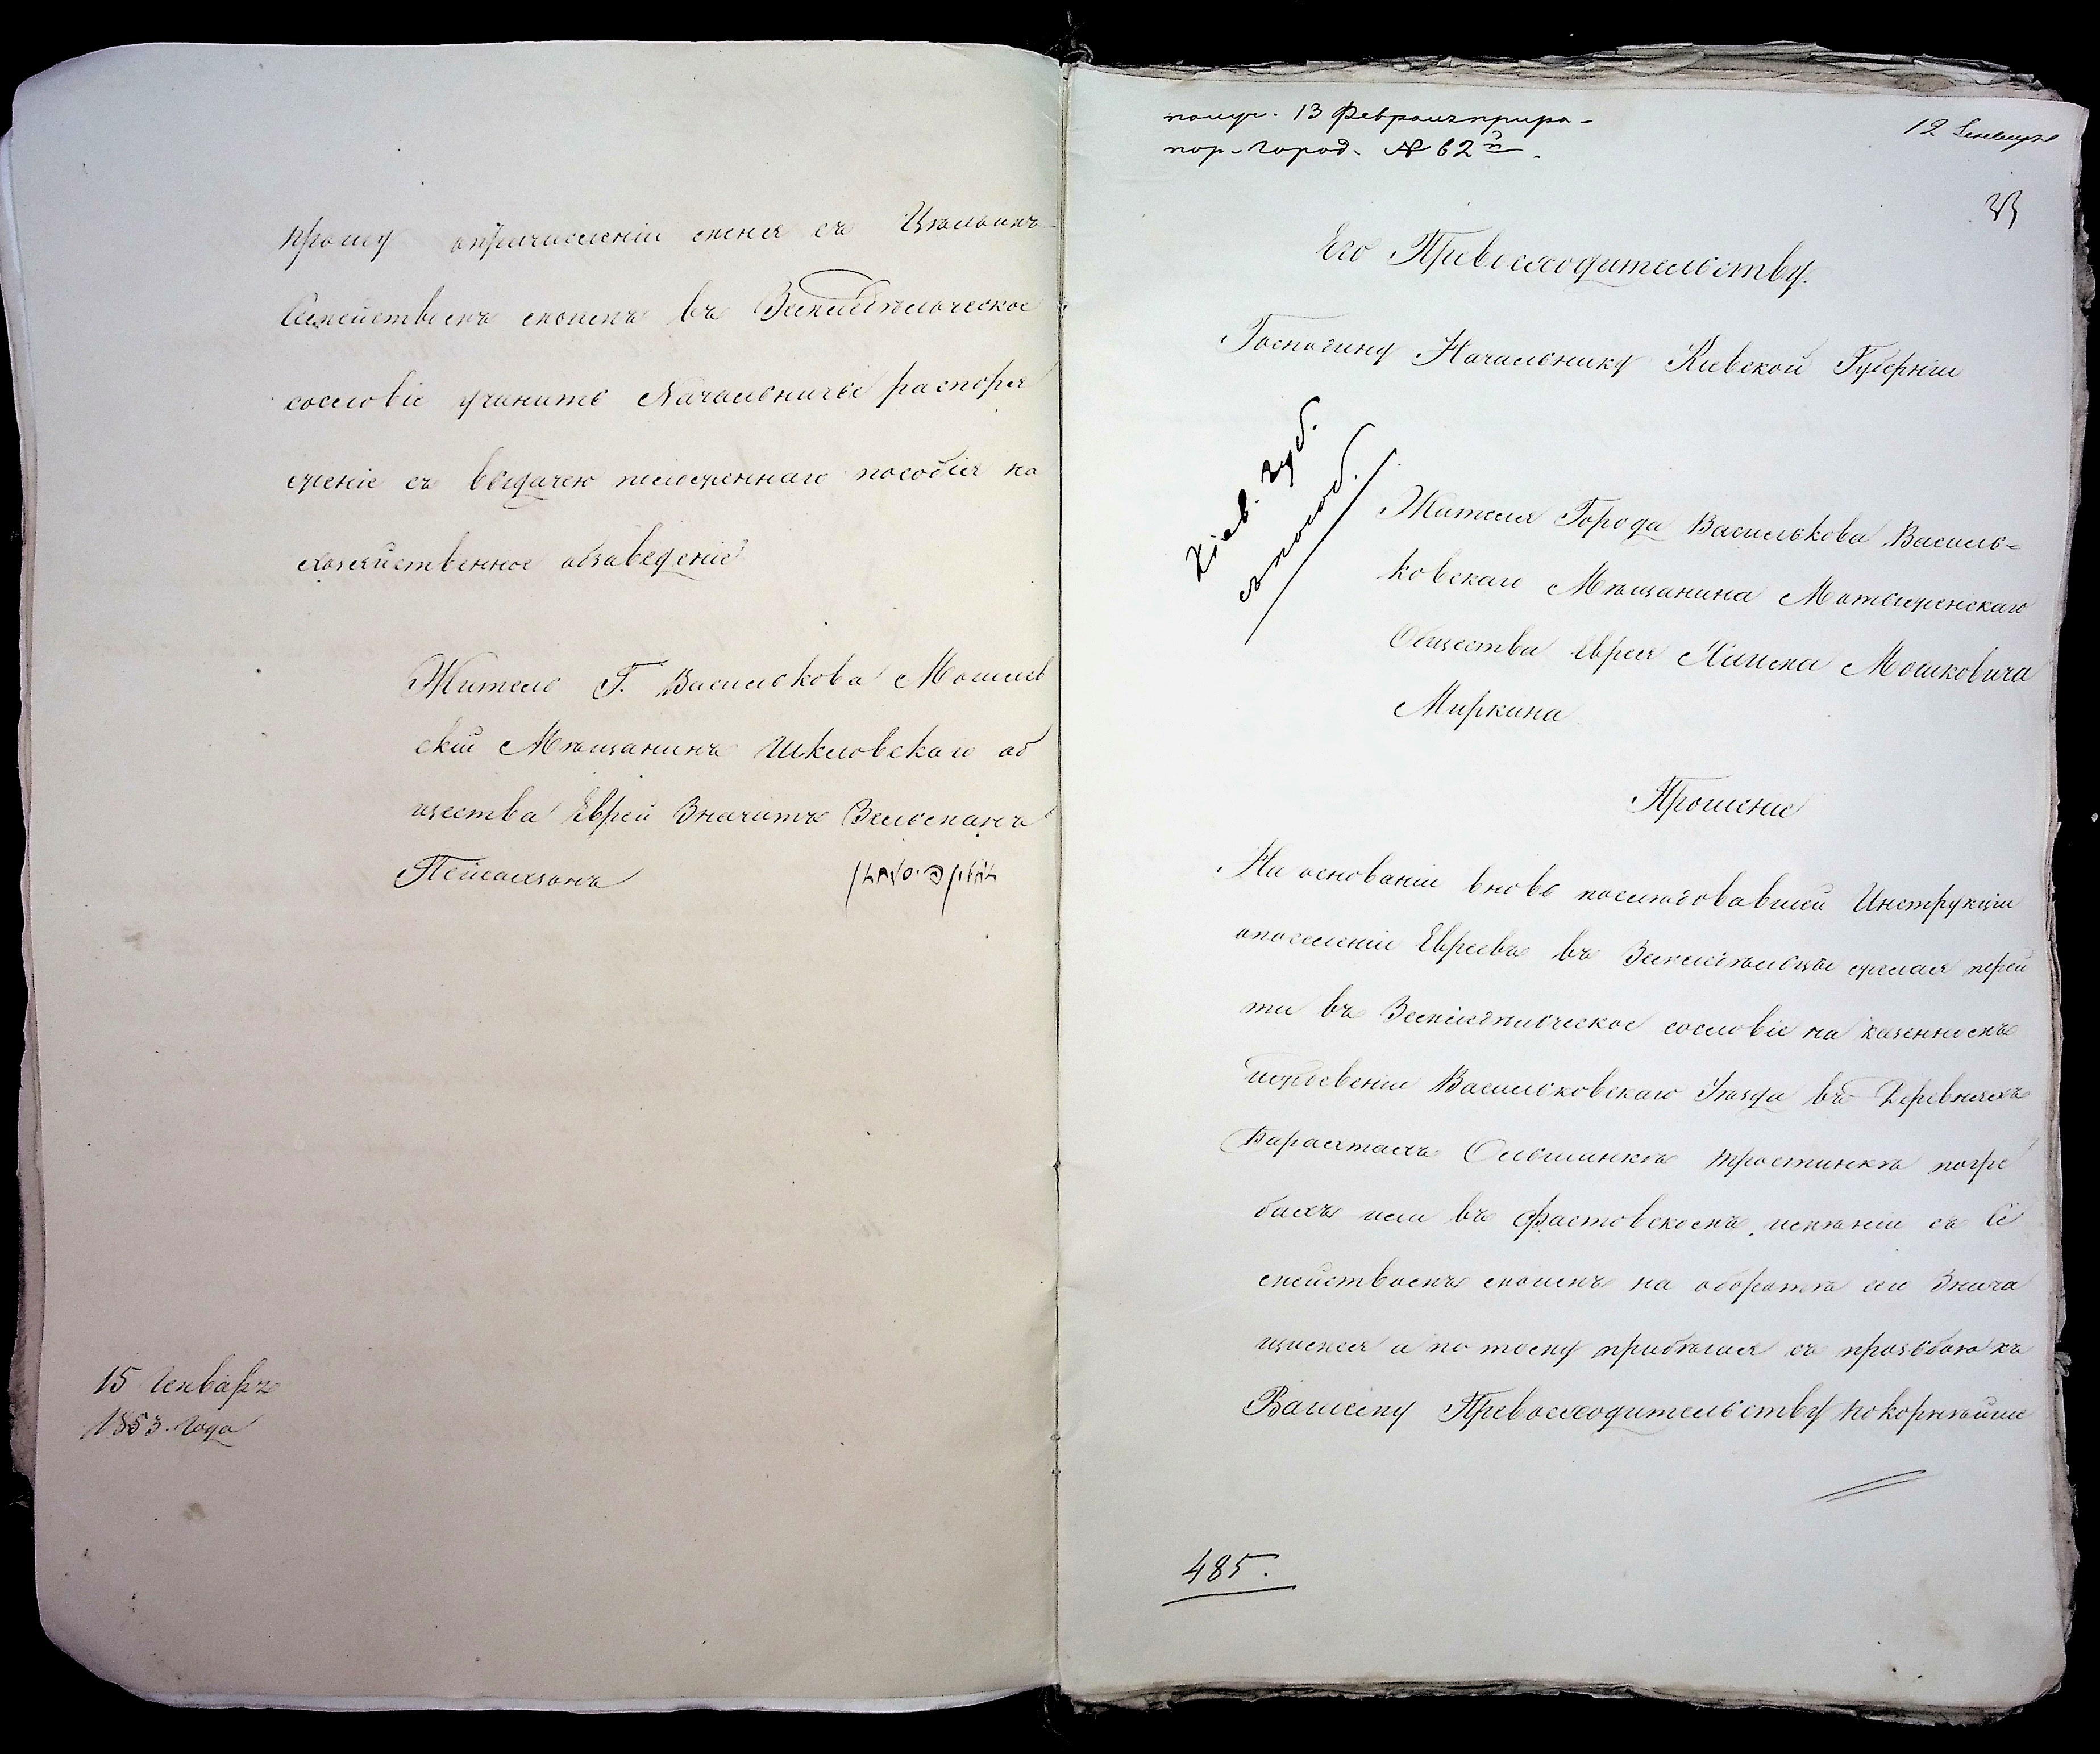 прошу опричисленіи меня съ Цѣлымъ
Семействомъ моимъ въ Земледѣльческое
сословіе учинить Начальничье распоря
женіе съ выдачею положеннаго пособія на
хозяйственное обзаведеніе
Житель Г. Василькова Могилев
скій Мѣщанинъ Шкловскаго об
щества Еврей Значитъ Зельманъ
15 Генваря
1853. года
получ. 13 Февраля
пор. город. № 62
12
Его Превосходительству.
Господину Начальнику Кіевской Губерніи
Кіев. губ.
съ пособ.
Жителя Города Василькова Василь=
ковскаго Мѣщанина
Общества Еврея Хаима Мошковича
Миркина
Прошеніе
На основаніи вновь послѣдовавшей Инструкціи
опоселеніи Евреевъ въ Земледѣльцы желая перей
ти въ Земледѣльческое сословіе на казенномъ
иждевеніи Васильковскаго Уѣзда въ Деревняхъ
Барахтахъ Ольшинкѣ Тростинкѣ погре
бахъ или въ Фастовскомъ имѣніи съ Се
мействомъ моимъ на оборотѣ сего Знача
щимся а по тому прибѣгая съ прозьбою къ
Вашему Превосходительству покорнѣйше
485.